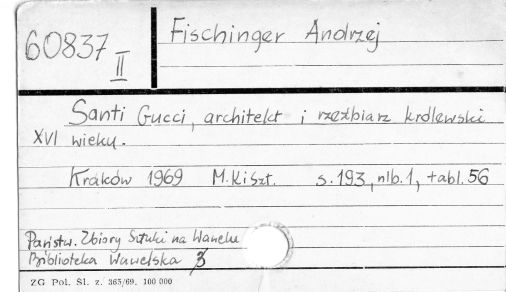 60837 II
Fischinger Andrzej
Santi Gucci, architekt i rzeźbiarz królewski
XVI wieku.
Kraków 1969 M.KiSzt. s.193, nlb.1, tabl.56
Państw. Zbiory Sztuki na Wawelu
Biblioteka Wawelska 3
ZG Pol. Śl. z. 365/69. 100 000